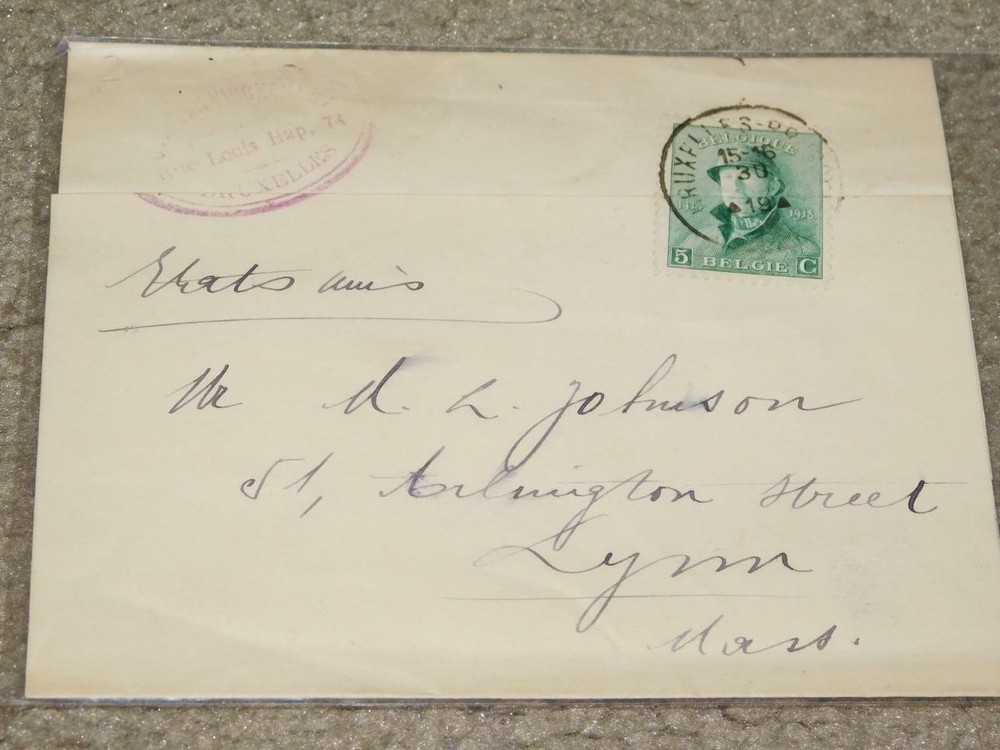 Rue Louis Hap, 74
BRUXELLES
BRUXELLES
15-16
30
19
BELGIQUE
1918
5 BELGIE C
Etats unis
Mr M. L. Johnson
51, Arlington Street
Lynn
Mass.